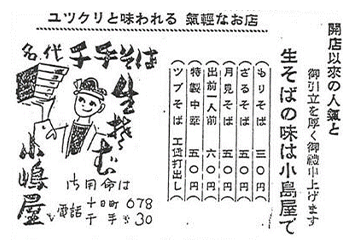 ユツクリと味われる 氣輕なお店
開店以來の人氣と
御引立を厚く御禮申上げます
生そばの味は小島屋で
もりそば 三〇円
ざるそば 五〇円
月見そば 五〇円
出前一人前 六〇円
特製中華 五〇円
ツブそば 工価打出し
名代 千手そば
生そば
小嶋屋
御用命は
電話 十日町 678
千手 30